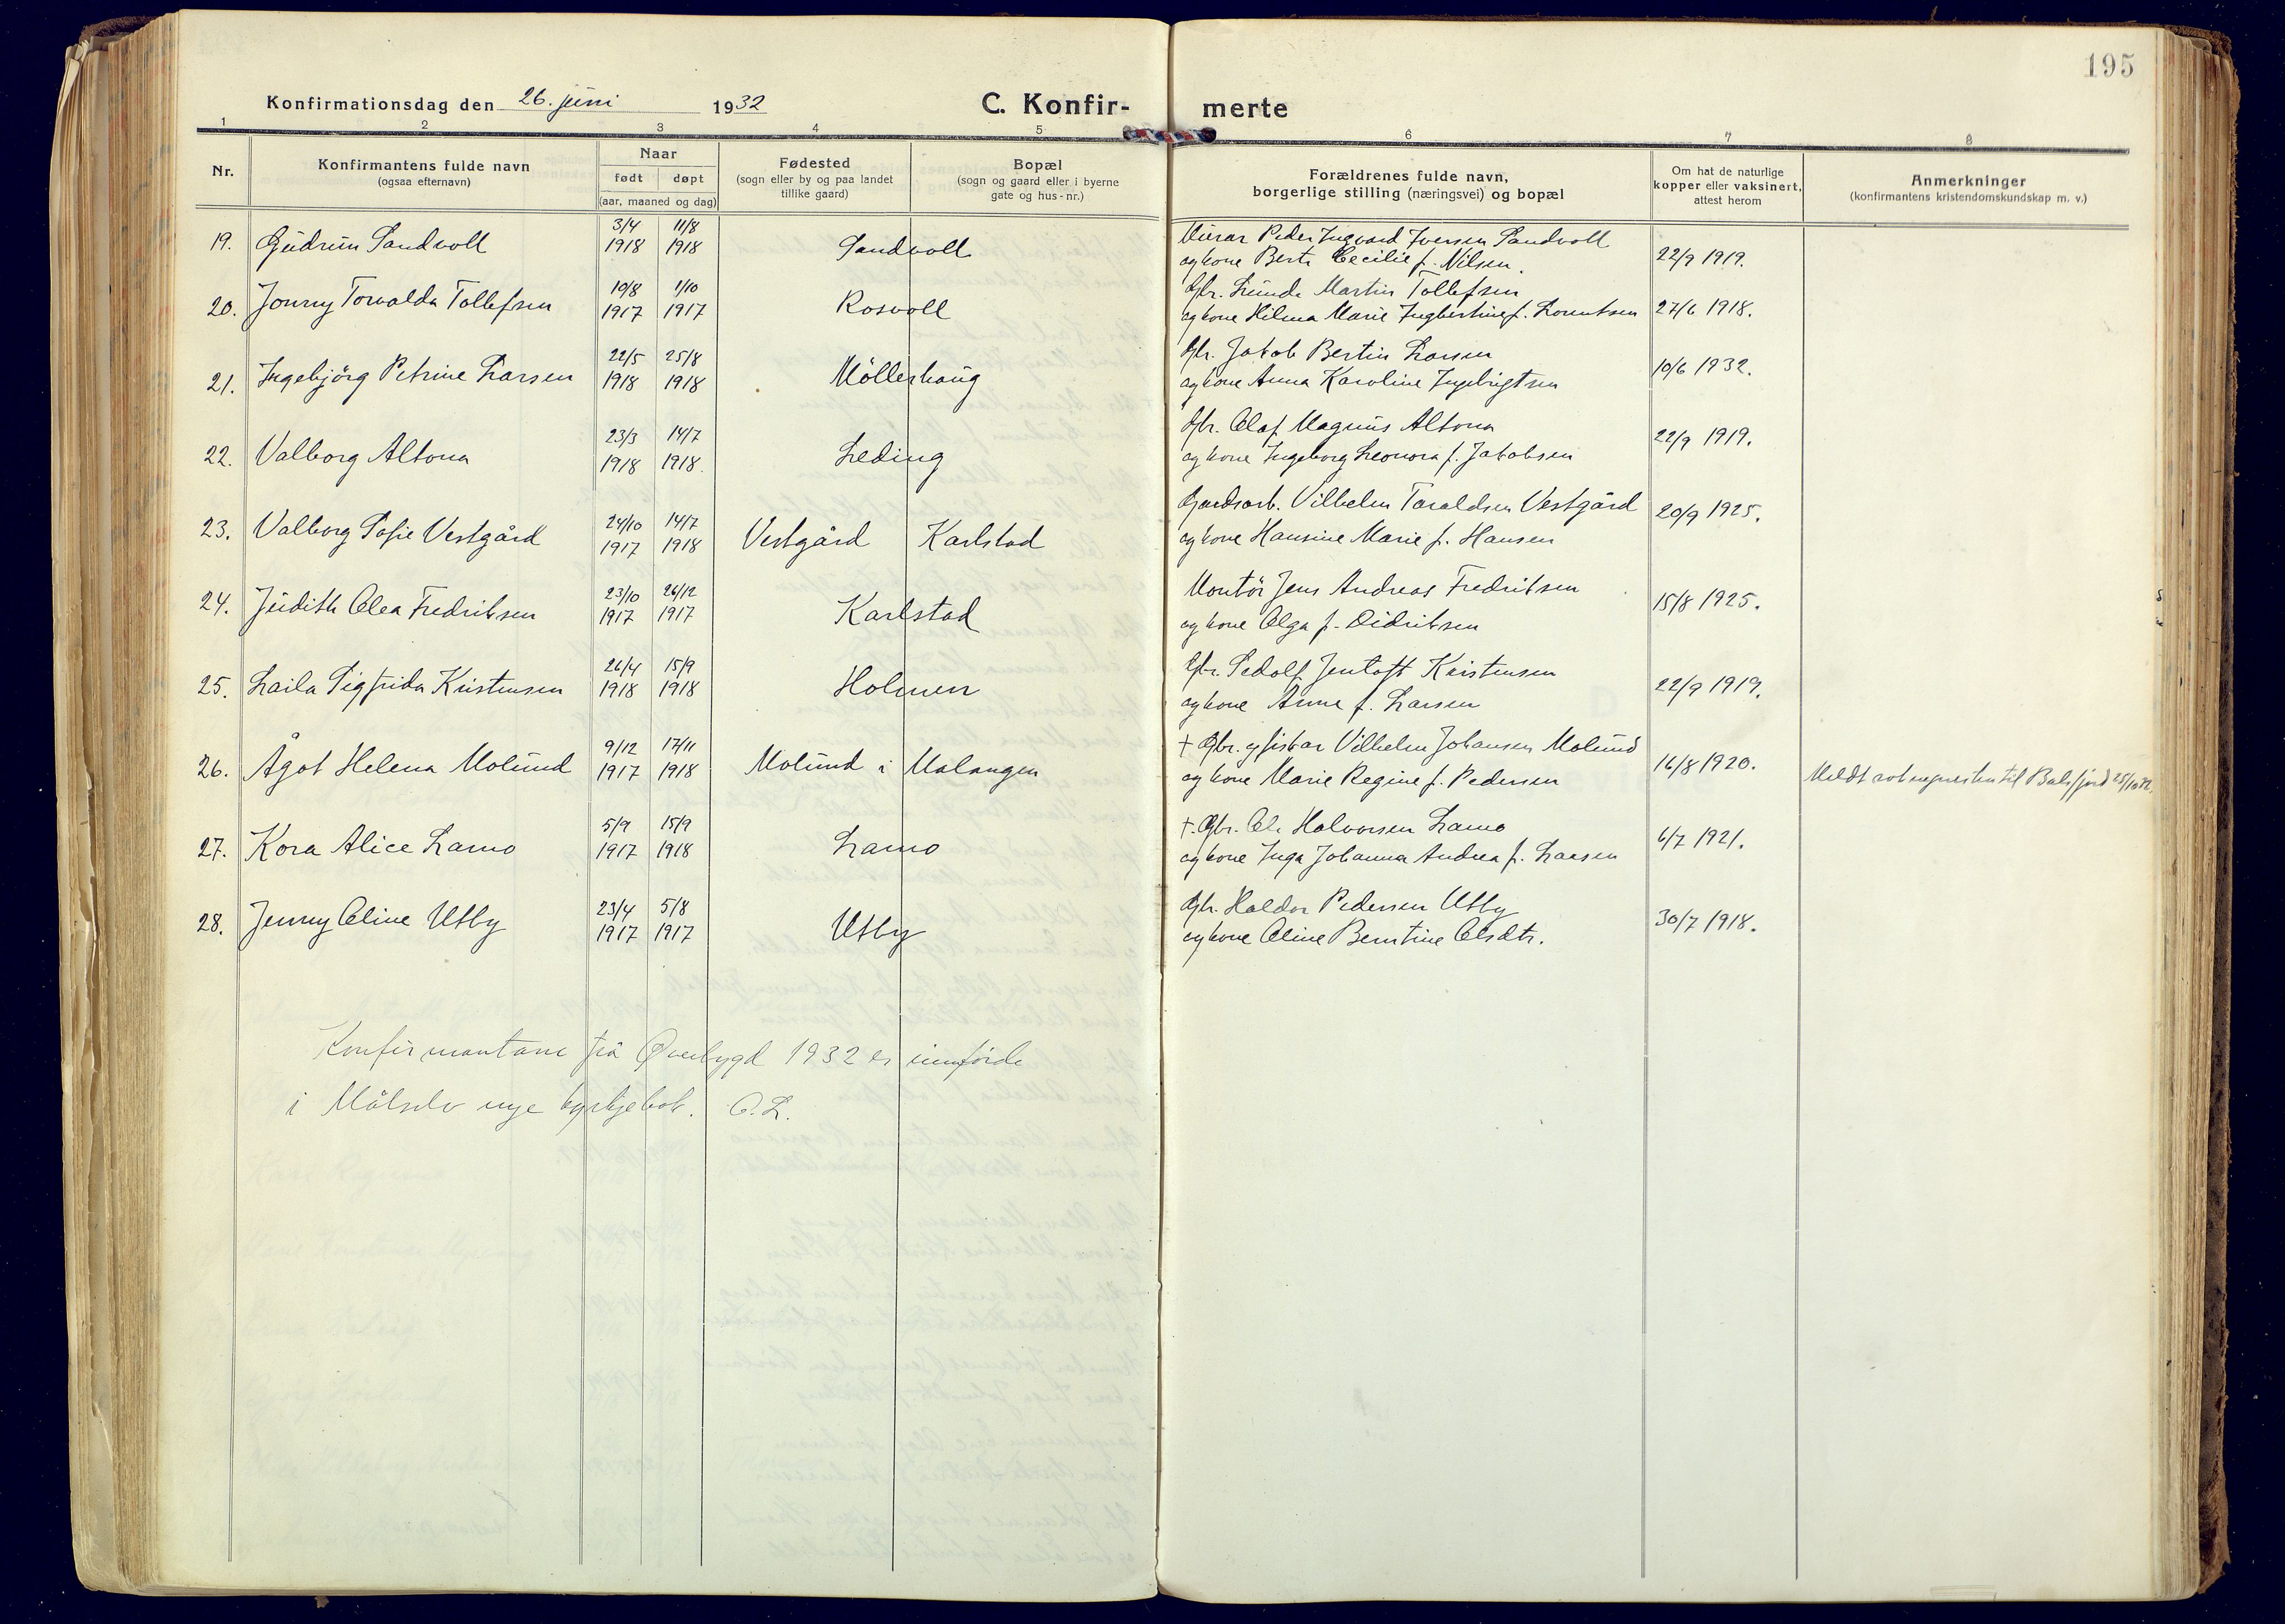 195
Konfirmationsdag den 26. juni 1932
C. Konfir- merte
1 2 3 4 5 6 7 8
Nr.
Konfirmantens fulde navn
(ogsaa efternavn)
Naar
født døpt
(aar, maaned og dag)
Fødested
(sogn eller by og paa landet
tillike gaard)
Bopæl
(sogn og gaard eller i byerne
gate og hus-nr.)
Forældrenes fulde navn,
borgerlige stilling (næringsvei) og bopæl
Om hat de naturlige
kopper eller vaksinert,
attest herom
Anmerkninger
(konfirmantens kristendomskundskap m. v.)
3/4 11/8 Murar Peder Ingvard Iversen Sandvoll
19. Gudrun Sandvoll 1918 1918 Sandvoll og kone Cecilie f. Nilsen. 22/9 1919.
19/8 1/10 Gbr. Martin Tollefsen
20. Torvalda Tollefsen 1917 1917 Rosvoll og kone Hilma Marie f. Lorentsen 27/6 1918.
22/5 25/8 Gbr. Jakob Bertin Larsen
21. Ingebjörg Petrine Larsen 1918 1918 Möllerhaug og kone Anna Karoline Ingebrigtsen 10/6 1932.
23/3 14/7 Gbr. Olaf Magnus Altona
22. Valborg Altona 1918 1918. Leding og kone Ingeborg Leonora f. Jakobsen 22/9 1919.
24/10 14/7 Gardsarb. Vilhelm Taraldsen Vestgård
23. Valborg Sofie Vestgård 1917 1918 Vestgård Karlstad og kone Hansine Marie f. Hansen 20/9 1925.
23/10 26/12 Montör Jens Andreas Fredriksen
24. Judith Olea Fredriksen 1917 1917 Karlstad og kone Olga f. Didriksen 15/8 1925.
26/4 15/9 Gbr. Sedolf Jentoft Kristensen
25. Laila Sigfrida Kristensen 1918 1918 Holmen og kone Anne f. Larsen 22/9 1919.
9/12 17/11 + Gbr. og fiskar Vilhelm Johansen Molund
26. Ågot Helena Molund 1917 1918 Molund i Malangen og kone Marie Regine f. Pedersen 16/8 1920. Meldt soknepresten til Balsfjord
5/9 15/9 +. Gbr. Ole Halvorsen Lamo
27. Kora Alice Lamo 1917 1918 Lamo og kone Inga Johanna Andrea f. Larsen 6/7 1921.
23/4 5/8 Gbr. Haldor Pedersen Utby
28. Jenny Oline Utby 1917 1917 Utby og kone Oline Berntine Olsdtr. 30/7 1918.
Konfirmantane frå Øverbygd 1932 er innförde
i Målselv nye kyrkjebok. O.L.